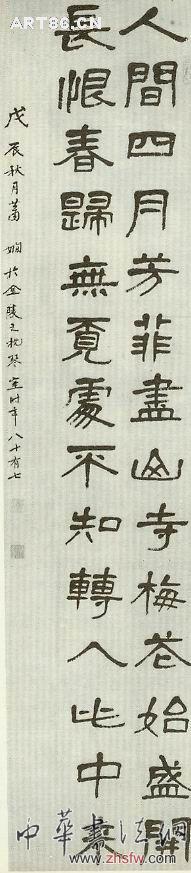 ART86.CN
人間四月芳菲盡山寺梅花始盛開
長恨春歸無覓處不知轉入此中來
戊辰秋月蕭嫻於金陵之枕琴室時年八十有七
中華書法網
www.zhsfw.com